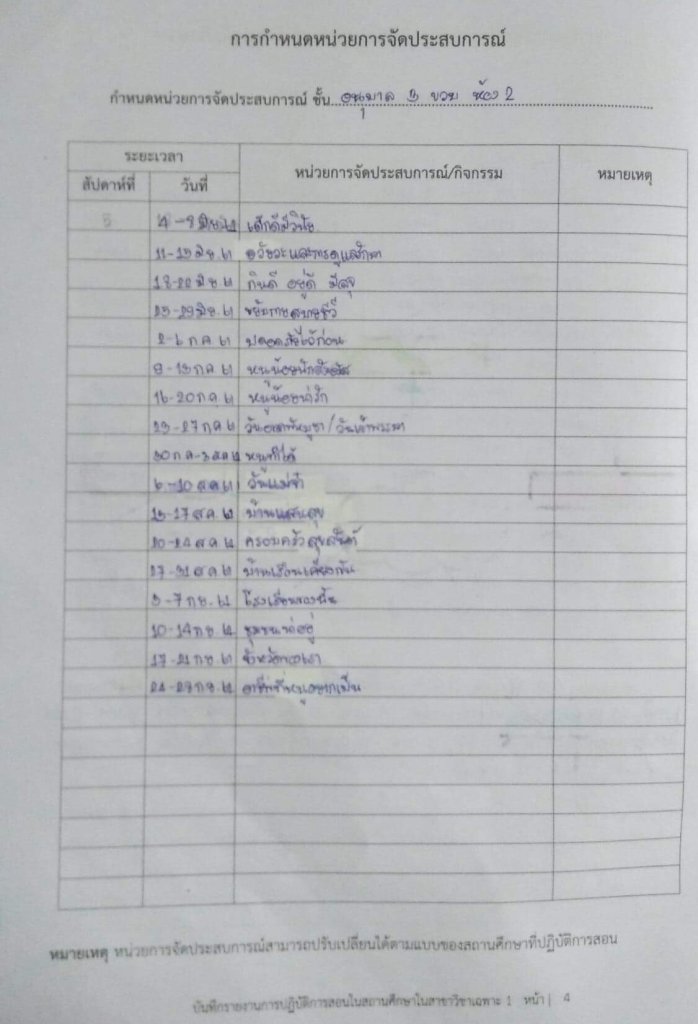 การกำหนดหน่วยการจัดประสบการณ์
กำหนดหน่วยการจัดประสบการณ์ ชั้น อนุบาล 3 ขวบ ห้อง 2
1
ระยะเวลา หน่วยการจัดประสบการณ์/กิจกรรม หมายเหตุ
สัปดาห์ที่ วันที่
4 - 8 มิย. 61 เด็กดีมีวินัย
11-15 มิย. 61 อวัยวะและการดูแลรักษา
18-22 มิย. 61 กินดี อยู่ดี มีสุข
25-29 มิย. 61 ขยับกายสบายชีวี
2-6 กค 61 ปลอดภัยไว้ก่อน
9-13 กค 61 หนูน้อยนักสัมผัส
16-20 กค 61 หนูน้อยน่ารัก
23-27 กค 61 วันอาสาฬหบูชา/วันเข้าพรรษา
30 กค-3 สค 61 หนูทำได้
6-10 สค 61 วันแม่
13-17 สค. 61 บ้านแสนสุข
20-24 สค. 61 ครอบครัวสุขสันต์
27-31 สค. 61 บ้านเรือนเคียงกัน
3-7 กย. 61 โรงเรียนของ
10-14 กย. 61 ชุมชนน่าอยู่
17-21 กย. 61 จังหวัดของเรา
24-28 กย. 61 อาชีพที่หนูอยากเป็น
หมายเหตุ หน่วยการจัดประสบการณ์สามารถปรับเปลี่ยนได้ตามแบบของสถานศึกษาที่ปฏิบัติการสอน
บันทึกรายงานการปฏิบัติการสอนในสถานศึกษาในสาขาวิชาเฉพาะ 1 หน้า | 4